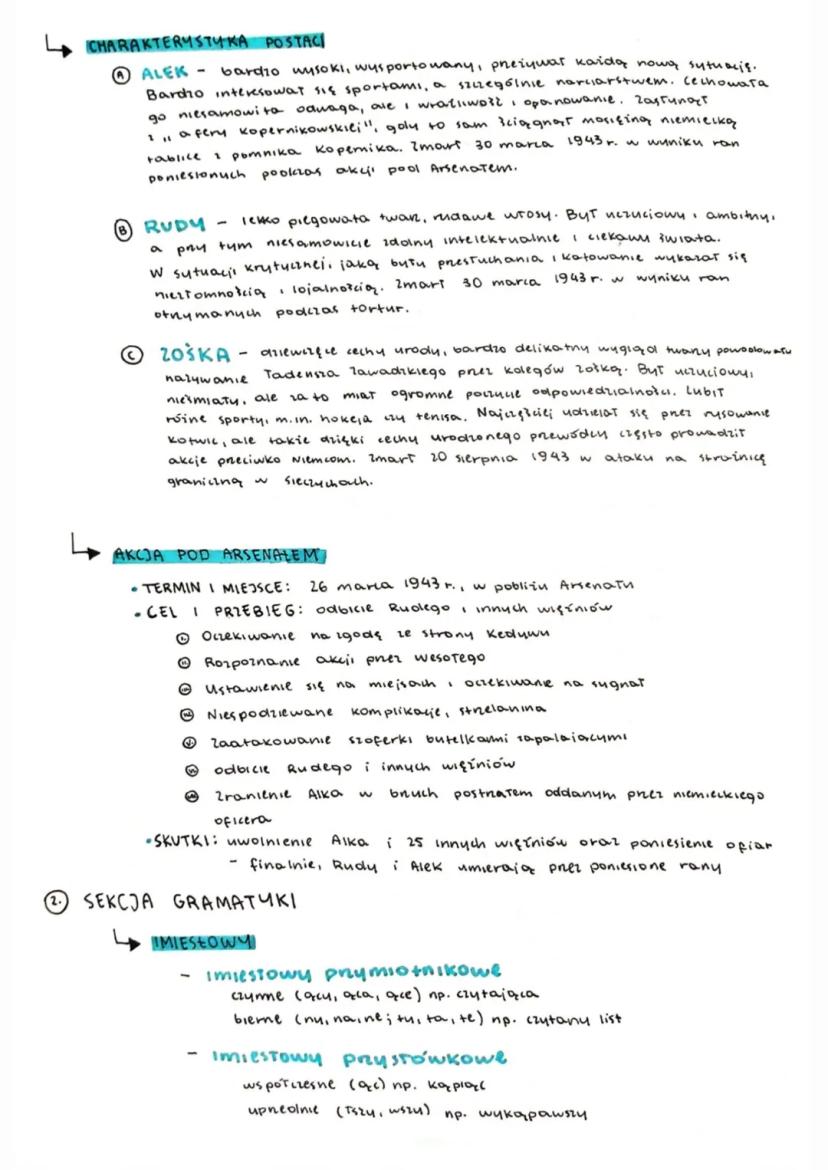 CHARAKTERYSTYKA POSTACI
A ALEK - bardzo wysoki, wysportowany, przeżywał każdą nową sytuację.
Bardzo interesował się sportami, a szczególnie narciarstwem. Cechowała
go niesamowita odwaga, ale i wrażliwość i opanowanie. Zasłynął
z „afery kopernikowskiej", gdy to sam ściągnął mosiężną niemiecką
tablicę z pomnika Kopernika. Zmarł 30 marca 1943 r. w wyniku ran
poniesionych podczas akcji pod Arsenałem.
B RUDY - lekko piegowata twarz, rudawe włosy. Był uczuciowy i ambitny,
a przy tym niesamowicie zdolny intelektualnie i ciekawy świata.
W sytuacji krytycznej, jaką były przesłuchania i katowanie wykazał się
niezłomnością i lojalnością. Zmarł 30 marca 1943 r. w wyniku ran
otrzymanych podczas tortur.
C ZOŚKA - dziewczęce cechy urody, bardzo delikatny wygląd twarzy powodowały
nazywanie Tadeusza Zawadzkiego przez kolegów zośką. Był uczuciowy,
nieśmiały, ale za to miał ogromne poczucie odpowiedzialności. Lubił
różne sporty, m.in. hokeja czy tenisa. Najczęściej udzielał się przez rysowanie
kotwic, ale także dzięki cechy urodzonego przewódcy często prowadził
akcje przeciwko Niemcom. Zmarł 20 sierpnia 1943 w ataku na strażnicę
graniczną w Sieczychach.
AKCJA POD ARSENAŁEM
• TERMIN I MIEJSCE: 26 marca 1943 r., w pobliżu Arsenału
• CEL I PRZEBIEG: odbicie Rudego i innych więźniów
I Oczekiwanie na zgodę ze strony Kedywu
II Rozpoznanie akcji przez Wesołego
III Ustawienie się na miejsach i oczekiwane na sygnał
IV Niespodziewane komplikacje, strzelanina
V Zaatakowanie szoferki butelkami zapalającymi
VI odbicie Rudego i innych więźniów
VII Zranienie Alka w brzuch postrzałem oddanym przez niemieckiego
oficera
• SKUTKI: uwolnienie Alka i 25 innych więźniów oraz poniesienie ofiar
- finalnie, Rudy i Alek umierają przez poniesione rany
2. SEKCJA GRAMATYKI
IMIESŁOWY
- imiesłowy przymiotnikowe
czynne (ący, ąca, ące) np. czytająca
bierne (ny, na, ne; ty, ta, te) np. czytany list
- imiesłowy przysłówkowe
współczesne (ąc) np. kąpiąc
uprzednie (łszy, wszy) np. wykąpawszy